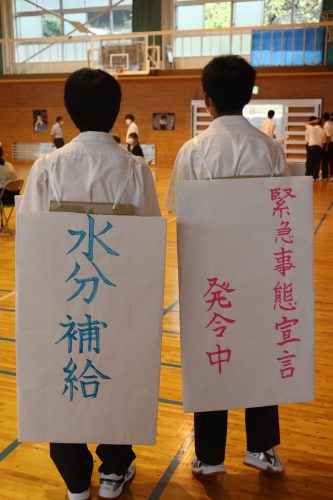 水分補給
緊急事態宣言
発令中